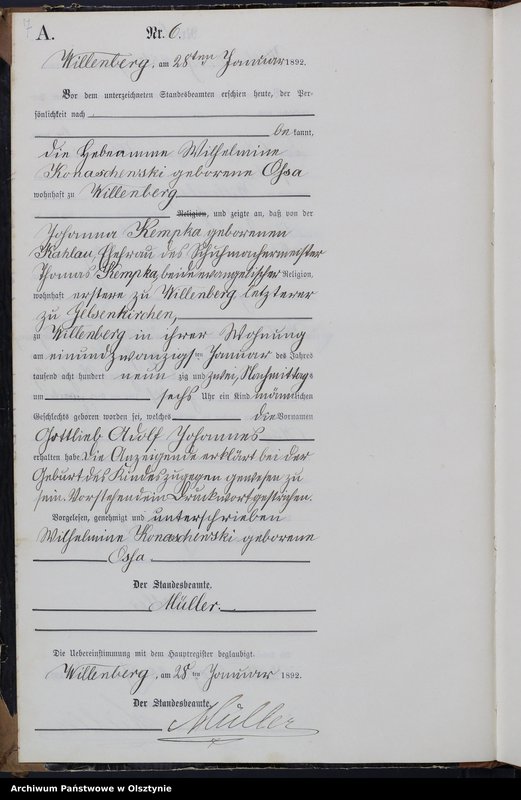 A. Nr. 6.
Willenberg, am 28ten Januar 1892.
Vor dem unterzeichneten Standesbeamten erschien heute, der Per-
sönlichkeit nach
bekannt,
die Hebeamme Wilhelmine
Konaschewski geborene Ossa
wohnhaft zu Willenberg
Religion, und zeigte an, daß von der
Johanna Kempka geborenen
Kahlau, Ehefrau des Schuhmachermeister
Thomas Kempka, beide evangelischer Religion,
wohnhaft erstere zu Willenberg letzterer
zu Gelsenkirchen,
zu Willenberg in ihrer Wohnung
am einundzwanzigsten Januar des Jahres
tausend acht hundert neunzig und zwei, Nachmittags
um sechs Uhr ein Kind männlichen
Geschlechts geboren worden sei, welches die Vornamen
Gottlieb Adolf Johannes
erhalten habe. Die Anzeigende erklärt bei der
Geburt des Kindes zugegen gewesen zu
sein. Vorstehend ein Druckwort gestrichen.
Vorgelesen, genehmigt und unterschrieben
Wilhelmine Konaschewski geborene
Ossa
Der Standesbeamte.
Müller.
Die Uebereinstimmung mit dem Hauptregister beglaubigt.
Willenberg, am 28ten Januar 1892.
Der Standesbeamte.
Müller
Archiwum Państwowe w Olsztynie